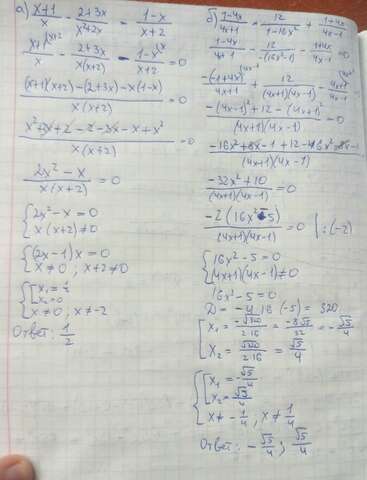 а) x+1/x - 2+3x/x²+2x = 1-x/x+2
x+1/x - 2+3x/x(x+2) - 1-x/x+2 = 0
(x+1)(x+2)-(2+3x)-x(1-x)/x(x+2) = 0
x²+3x+2-2-3x-x+x²/x(x+2) = 0
2x²-x/x(x+2) = 0
{2x²-x=0
x(x+2)≠0
{(2x-1)x=0
x≠0; x+2≠0
{[x₁=½
x₂=0
x≠0, x≠-2
Ответ: 1/2
б) 1-4x/4x+1 = 12/1-16x² + 1+4x/4x-1
1-4x/4x+1 - 12/-(16x²-1) - 1+4x/4x-1 = 0
-(-1+4x)/4x+1 + 12/(4x+1)(4x-1) - 4x+1/4x-1 = 0
-(4x-1)²+12-(4x+1)²/(4x+1)(4x-1) = 0
-16x²+8x-1+12-16x²-8x-1/(4x+1)(4x-1)
-32x²+10/(4x+1)(4x-1) = 0
-2(16x²-5)/(4x+1)(4x-1) = 0 |:(-2)
{16x²-5=0
(4x+1)(4x-1)≠0
16x²-5=0
D = -4·16·(-5) = 320
[x₁ = -√320/2·16 = -8√5/32 = -√5/4
x₂ = √320/2·16 = √5/4
{[x₁=-√5/4
x₂=√5/4
x≠-1/4, x≠1/4
Ответ: -√5/4; √5/4